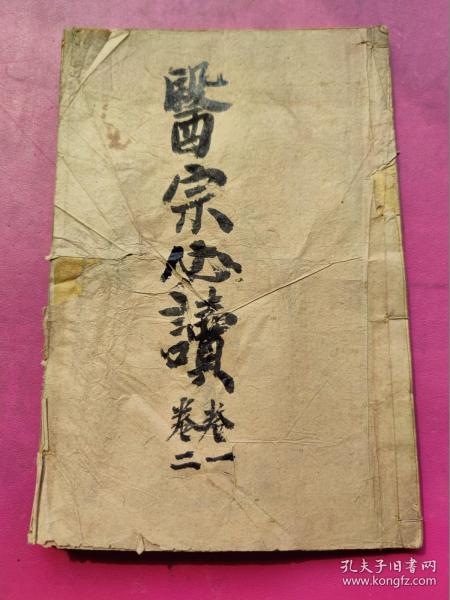 醫宗必讀
卷一
卷二
孔夫子旧书网
www.kongfz.com